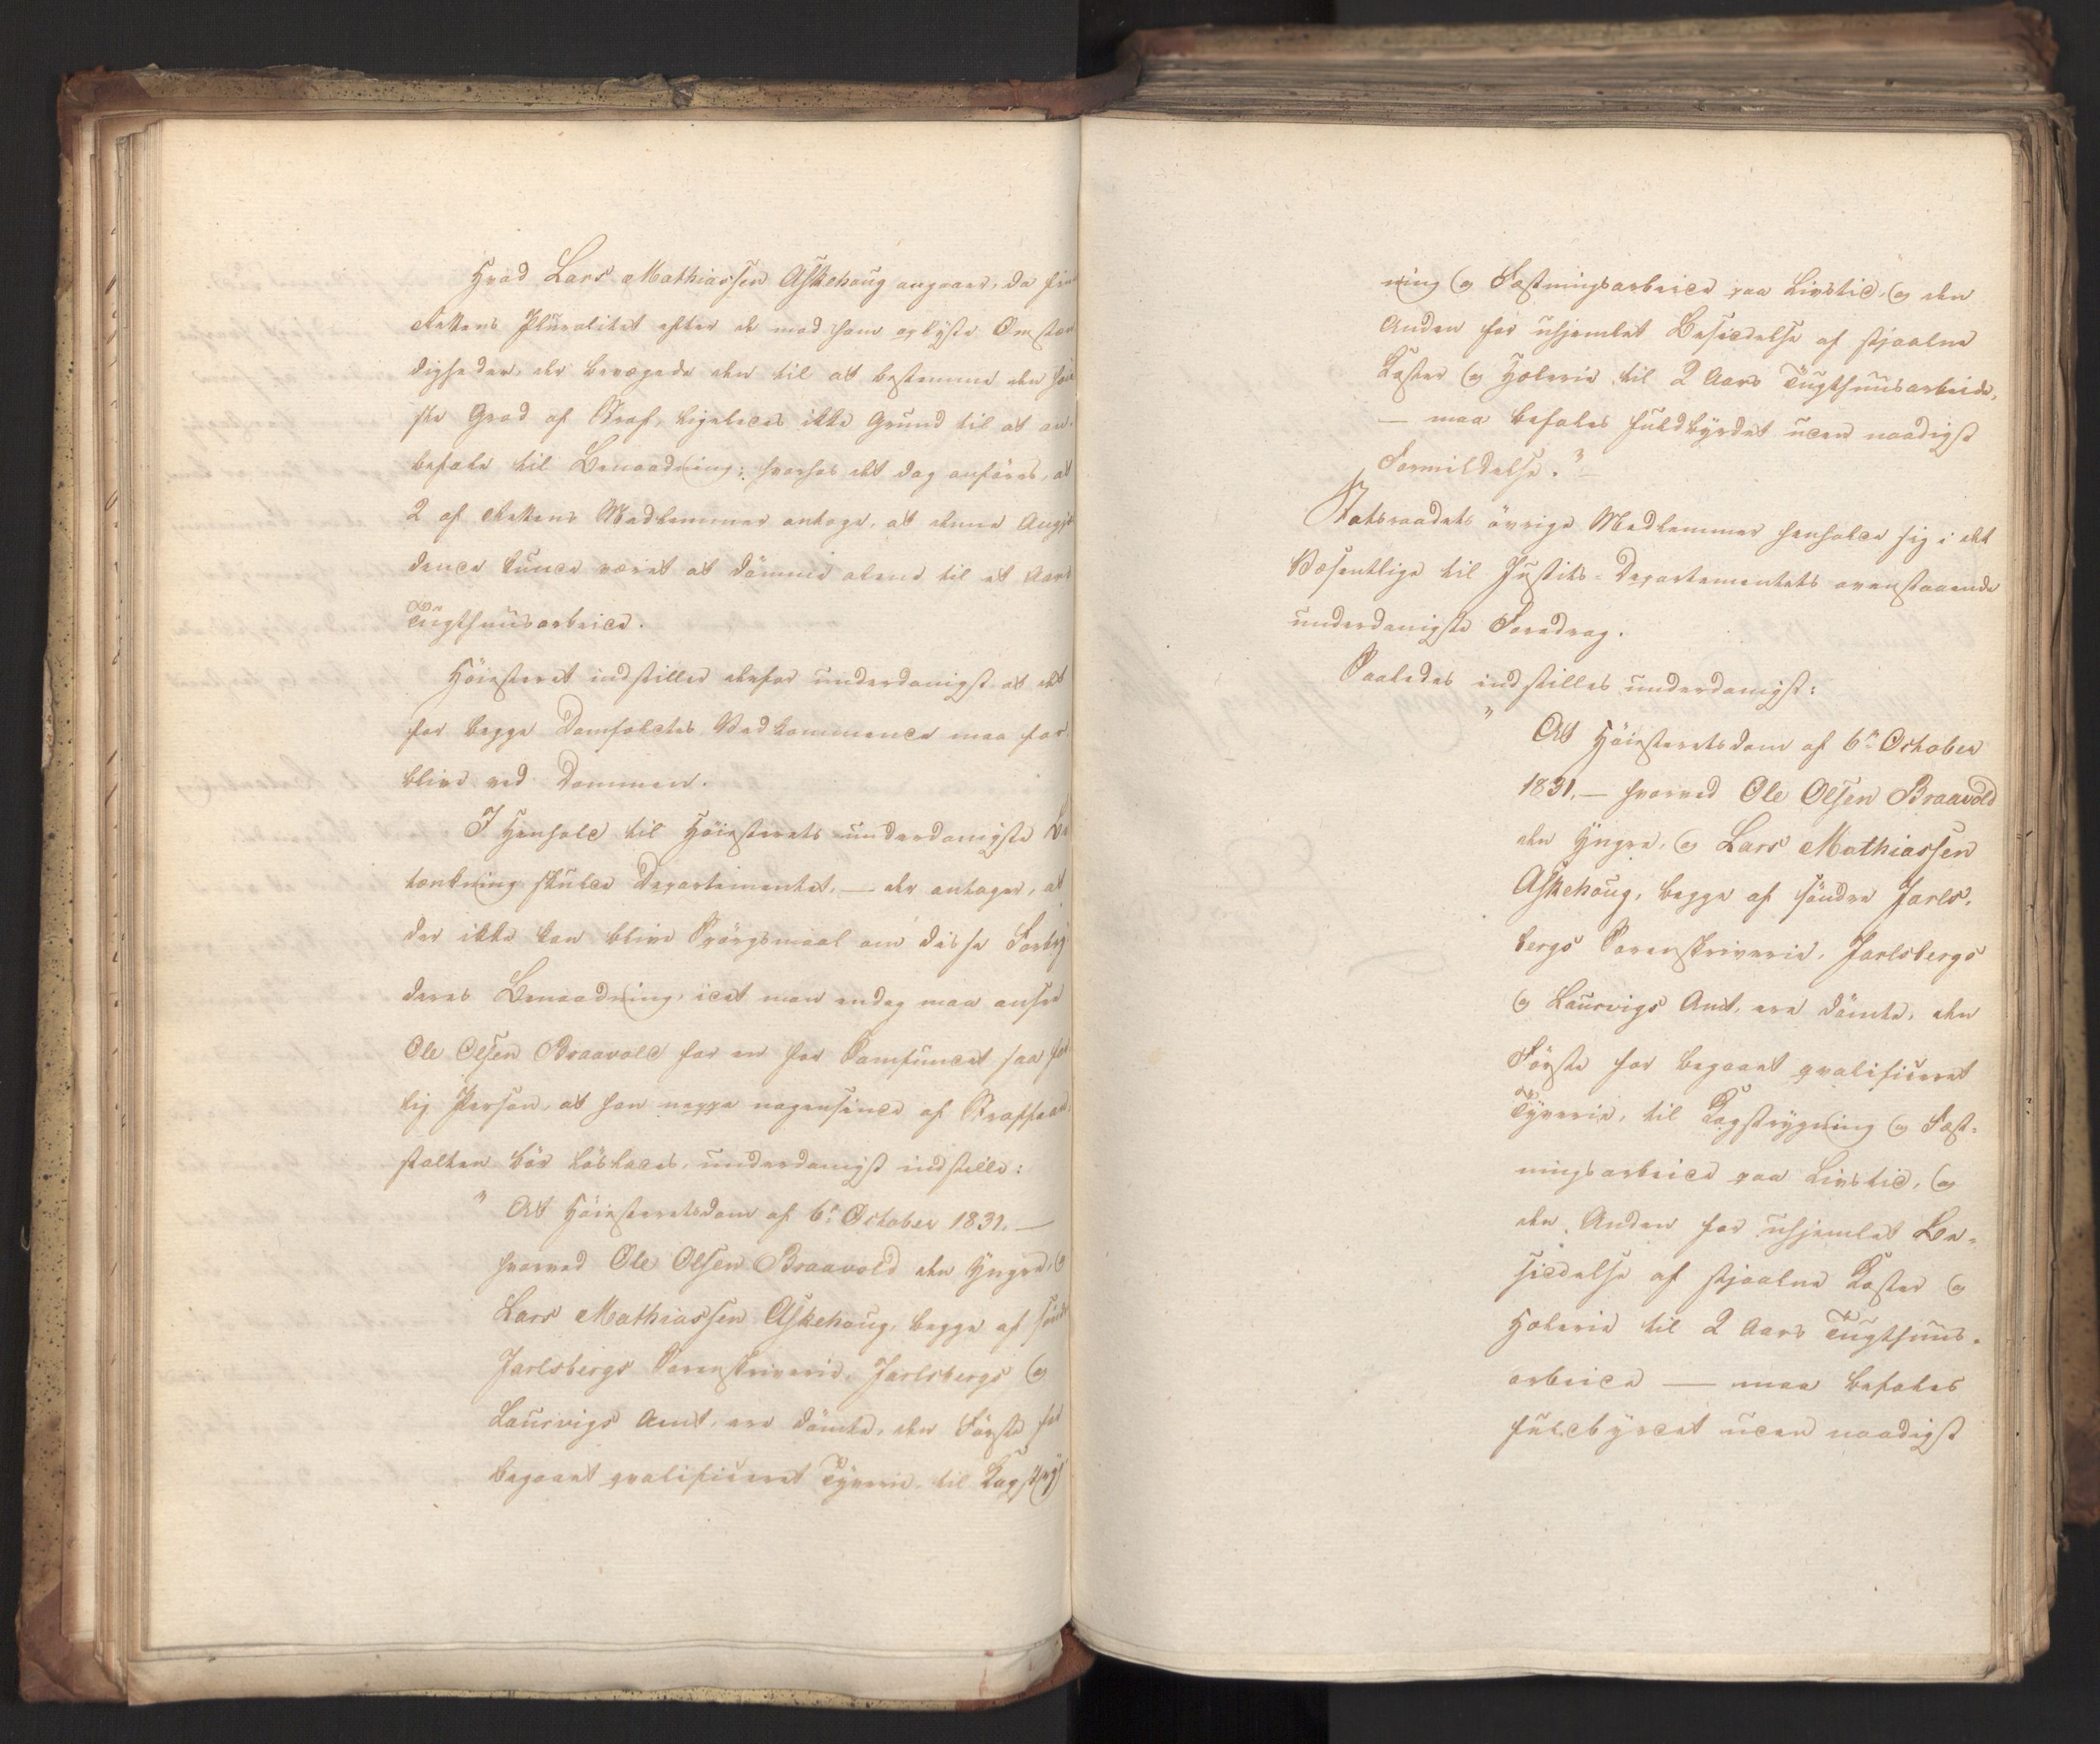 Hvad Lars Mathiassen Askehoug angaaer, da fin
Rettens Pluralitet efter de mod ham oplyste Omstæn
digheder, der bevægede den til at bestemme den høie
ste Grad af Straf, ligeledes ikke Grund til at an-
befale til Benaadning; hvorhos det dog anføres, at
2 af Rettens Medlemmer antoge, at denne Angjæl
dende burde været at dömme alene til et Aars
Tugthuusarbeide.
Höiesteret indstiller derfor underdanigst at det
for begge Domfældtes Vedkommende maa for-
blive ved Dommen.
I Henhold til Höiesterets underdanigste Be
tænkning skulde Departementet, — der antager, at
der ikke kan blive Spörgsmaal om disse Forbry
deres Benaadning, idet man endog maa ansee
Ole Olsen Braavold for en for Samfundet saa far
lig Person, at han neppe nogensinde af Straffean
stalten bör löslades, underdanigst indstille:
" At Höiesteretsdom af 6te October 1831. —
hvorved Ole Olsen Braavold den Yngre, og
Lars Mathiassen Askehoug, begge af söndre
Jarlsbergs Sorenskriverie, Jarlsbergs og
Laurvigs Amt, ere dömte, den Förste for
begaaet qvalificeret Tyverie til Kagstryg
ning og Fæstningsarbeide paa Livstid, og den
Anden for uhjemlet Besiddelse af stjaalne
Koster og Hæleri til 2 Aars Tugthuusarbeide,
— maa befales fuldbyrdet uden naadigst
Formildelse."
Statsraadets övrige Medlemmer henholdt sig i det
Væsentlige til Justits-Departementets ovenstaaende
underdanigste Foredrag.
Saaledes indstilles underdanigst:
" At Höiesteretsdom af 6te October
1831. — hvorved Ole Olsen Braavold
den Yngre, og Lars Mathiassen
Askehoug, begge af söndre Jarls-
bergs Sorenskriverie, Jarlsbergs
og Laurvigs Amt, ere dömte, den
Förste for begaaet qvalificeret
Tyverie, til Kagstrygning og Fæst-
ningsarbeide paa Livstid, og
den Anden for uhjemlet Be-
siddelse af stjaalne Koster og
Hælerie til 2 Aars Tugthuus-
arbeide — maa befales
fuldbyrdet uden naadigst